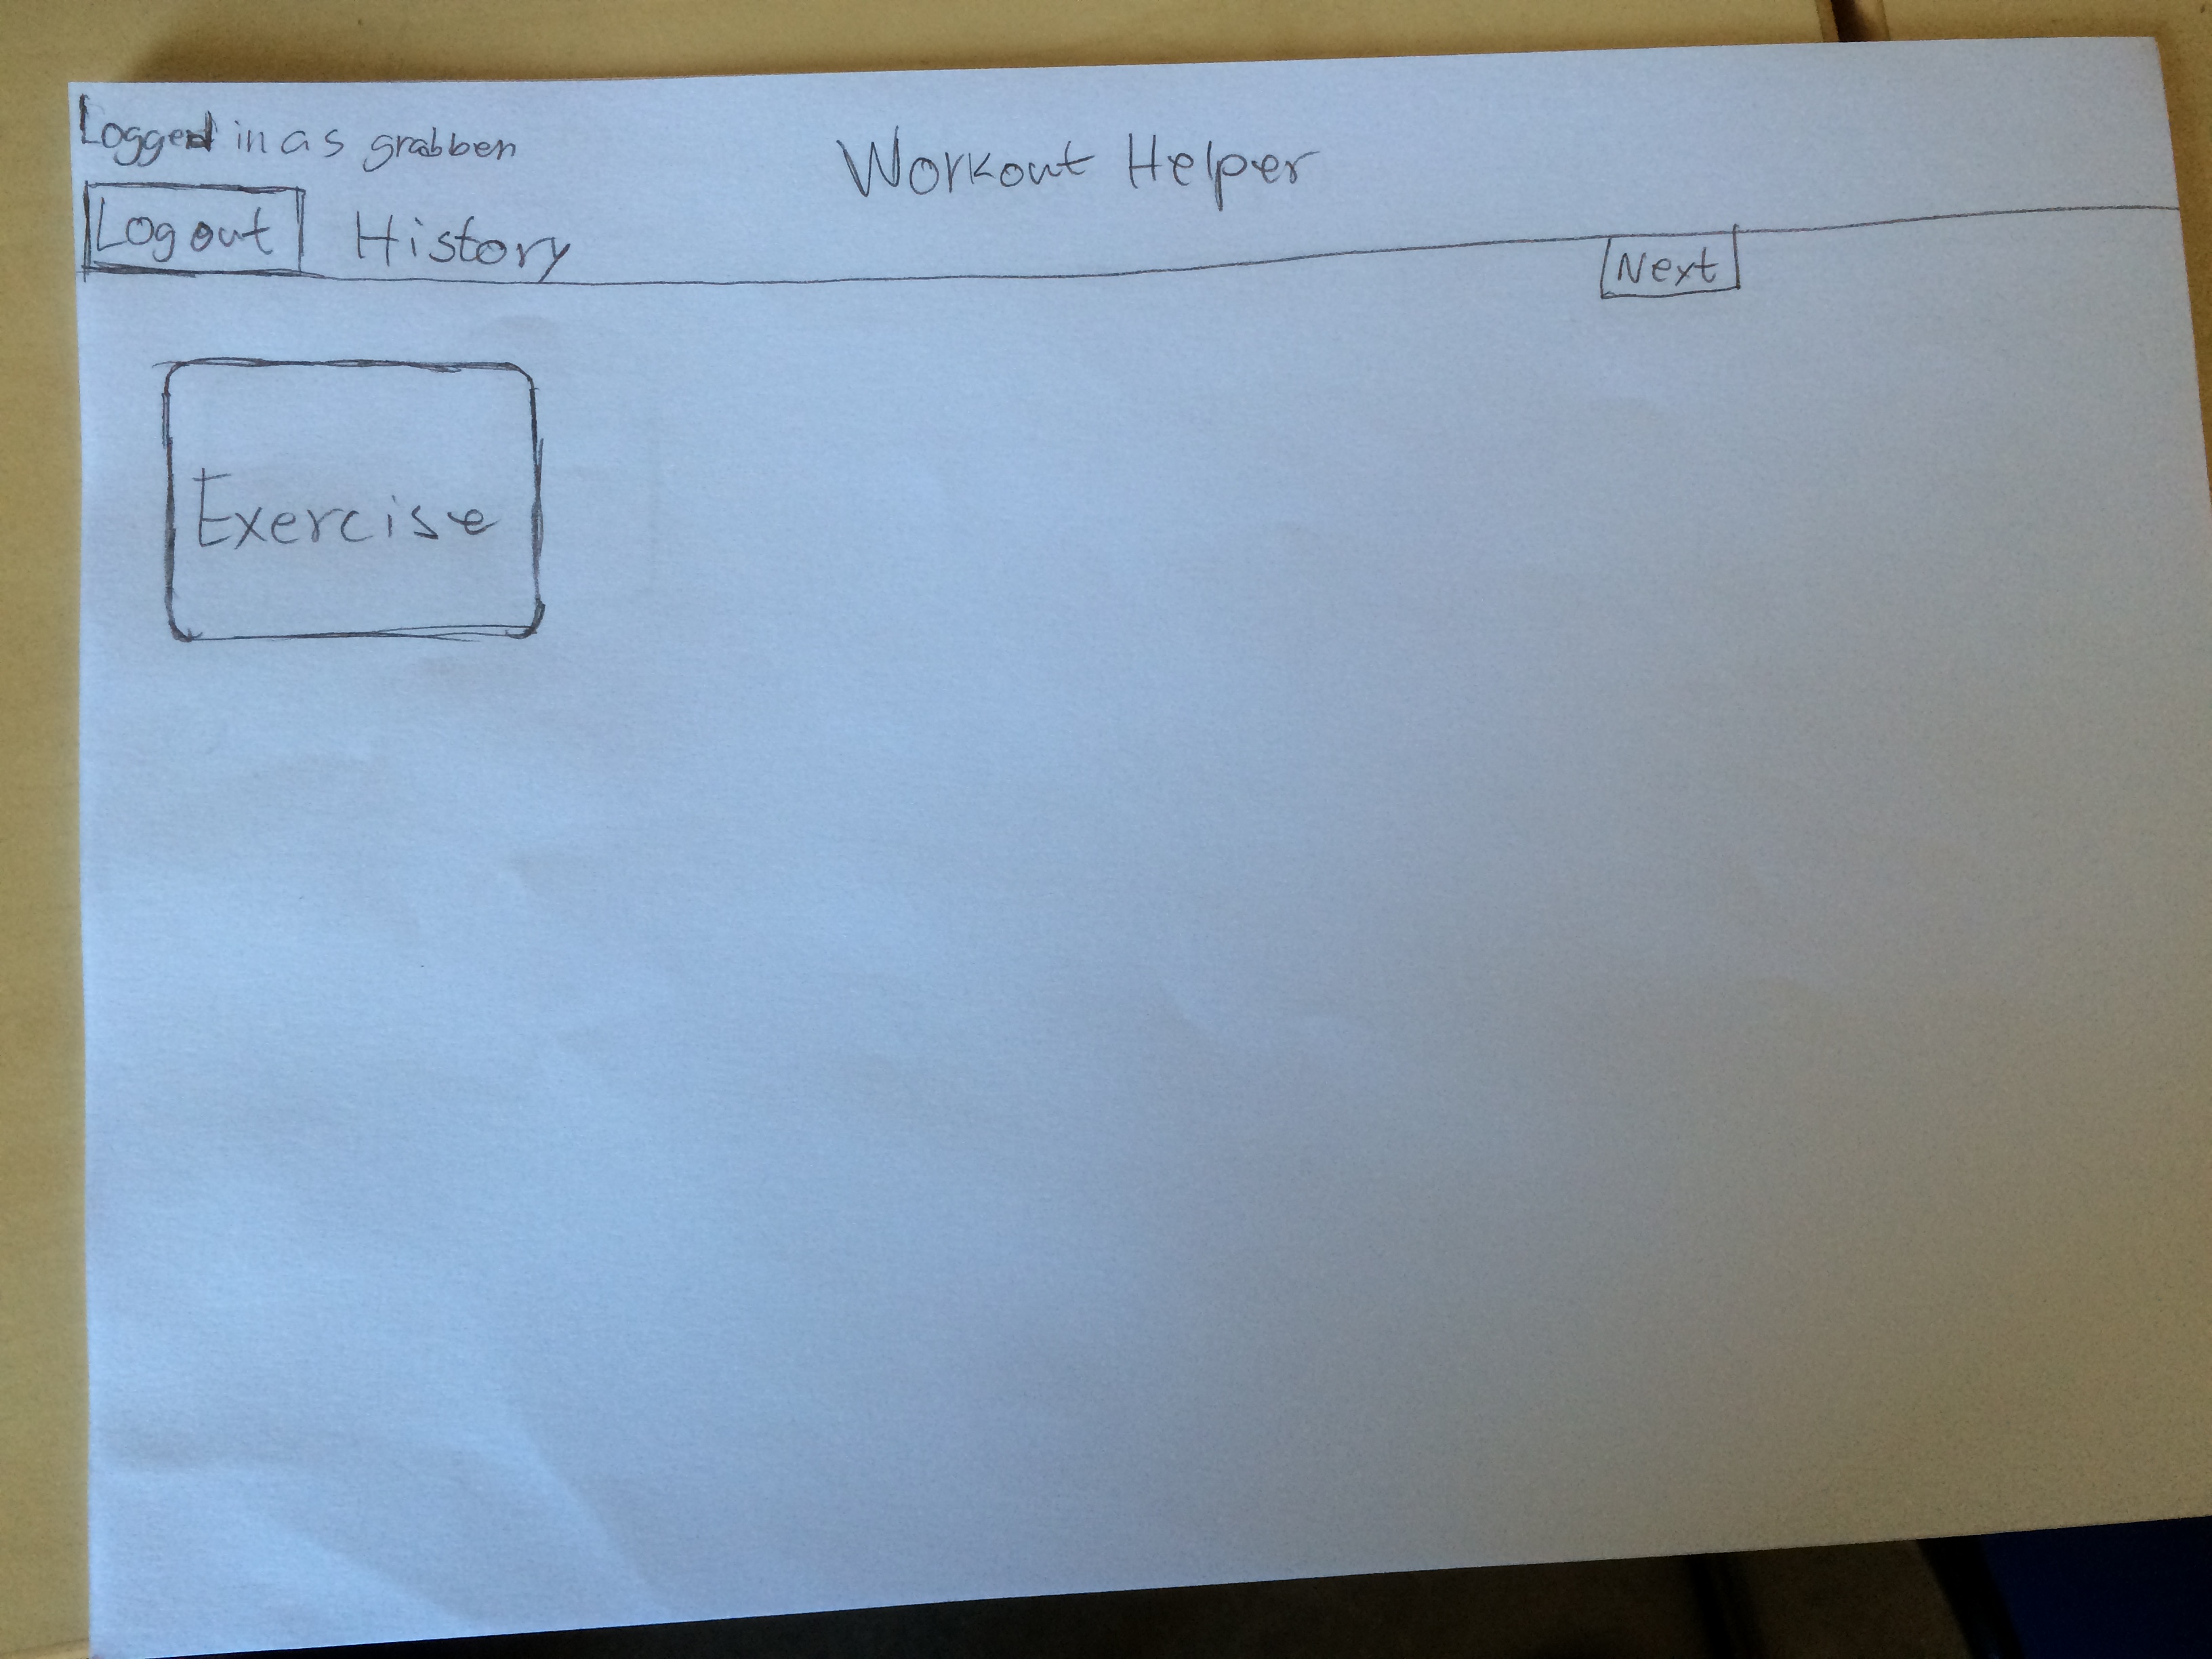 Logged in as grabben
Workout Helper
Log out History
Next
Exercise